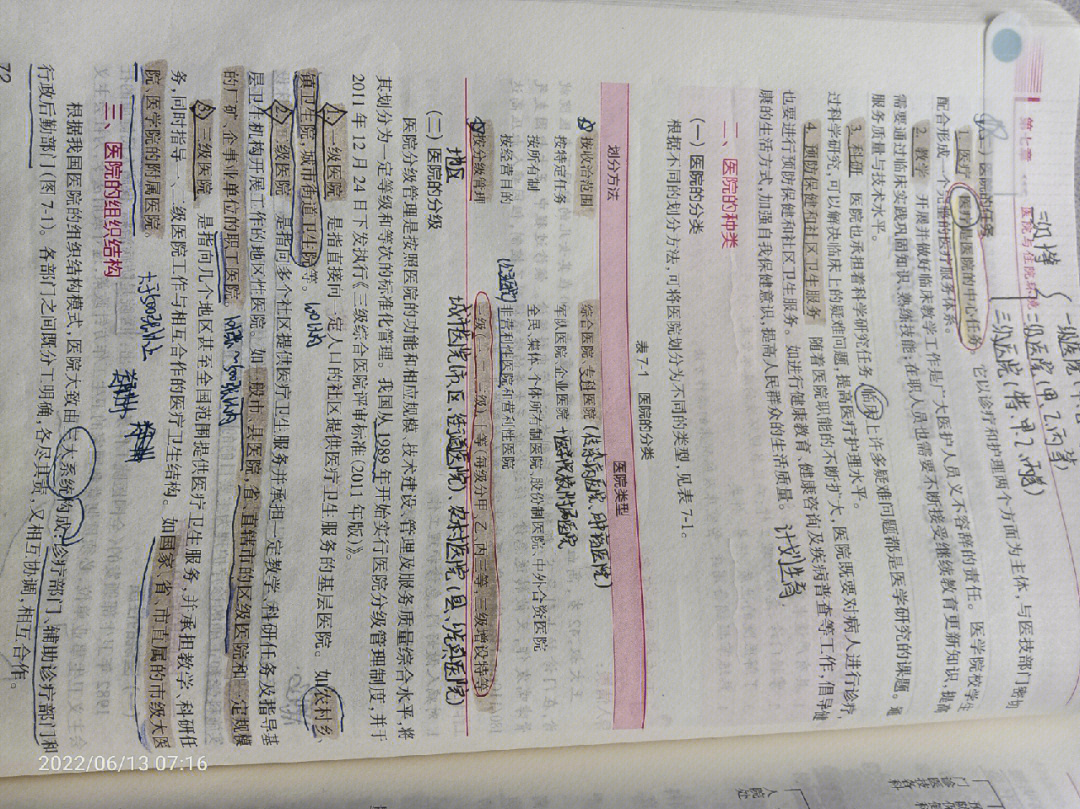 一级医院(甲乙丙等)
二级医院(甲乙丙等)
三级医院(特甲乙丙等)
第七章 医院与住院环境
(二)医院的任务
1. 医疗 医疗是医院的中心任务。它以诊疗和护理两个方面为主体,与医技部门密切
配合形成一个完整的医疗服务体系。
2. 教学 开展并做好临床教学工作是广大医护人员义不容辞的责任。医学院校学生
需要通过临床实践巩固知识、熟练技能;在职人员也需要不断接受继续教育更新知识,提高
服务质量与技术水平。
3. 科研 医院也承担着科学研究任务。临床上许多疑难问题都是医学研究的课题。通
过科学研究,可以解决临床上的疑难问题,提高医疗护理水平。
4. 预防保健和社区卫生服务 随着医院职能的不断扩大,医院既要对病人进行诊疗,
也要进行预防保健和社区卫生服务。如进行健康教育、健康咨询及疾病普查等工作,倡导健
康的生活方式,加强自我保健意识,提高人民群众的生活质量。 计划生育
二、医院的种类
(一)医院的分类
根据不同的划分方法,可将医院划分为不同的类型,见表 7-1。
表 7-1 医院的分类
划分方法 医院类型
按收治范围 综合医院、专科医院(传染病医院、肿瘤医院)
按特定任务 军队医院、企业医院 +医学院校附属医院
按所有制 全民、集体、个体所有制医院,股份制医院、中外合资医院
按经营目的 非营利性医院和营利性医院
按分级管理 三级(一、二、三级)、十等(每级分甲、乙、丙三等,三级增设特等)
地区 城市医院(市、区、街道医院)、农村医院(县、乡镇医院)
(二)医院的分级
医院分级管理是按照医院的功能和相应规模、技术建设、管理及服务质量综合水平,将
其划分为一定等级和等次的标准化管理。我国从 1989 年开始实行医院分级管理制度,并于
2011 年 12 月 24 日下发执行《三级综合医院评审标准(2011 年版)》。
1. 一级医院 是指直接向一定人口的社区提供医疗卫生服务的基层医院。如农村乡、
镇卫生院,城市街道卫生院等。 100张内
2. 二级医院 是指向多个社区提供医疗卫生服务并承担一定教学、科研任务及指导基
层卫生机构开展工作的地区性医院。如一般市、县医院,省、直辖市的区级医院和一定规模
的厂矿、企事业单位的职工医院。
3. 三级医院 是指向几个地区甚至全国范围提供医疗卫生服务,并承担教学、科研任
务,同时指导一、二级医院工作与相互合作的医疗卫生结构。如国家、省、市直属的市级大医
院、医学院的附属医院。
三、医院的组织结构
根据我国医院的组织结构模式,医院大致由三大系统构成:诊疗部门、辅助诊疗部门和
行政后勤部门(图 7-1)。各部门之间既分工明确,各尽其责,又相互协调,相互合作。
72
2022/06/13 07:16